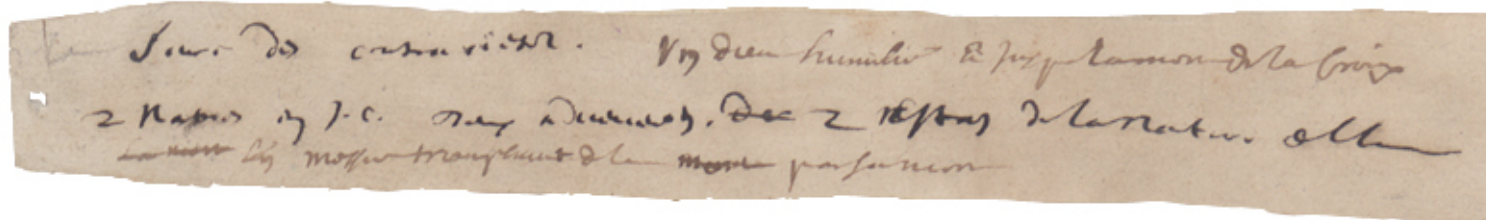 Source des contrarietez. Vn Dieu humilié Et jusqu'a la mort de la Croix
2 Natures en J.C. deux aduenemens. 2 estats de la nature de lhom
Un messie triomphant de la mort par sa mort